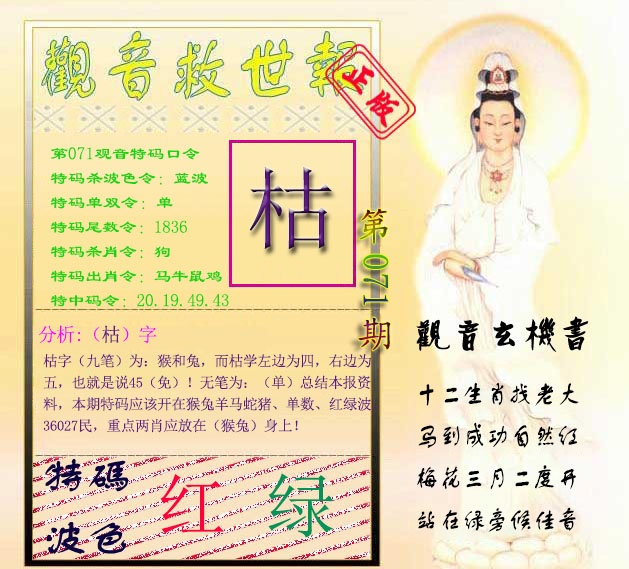 觀音救世報
正版
第071观音特码口令
特码杀波色令：蓝波
特码单双令：单
特码尾数令：1836
特码杀肖令：狗
特码出肖令：马牛鼠鸡
特中码令：20.19.49.43
枯
第071期
分析:（枯）字
枯字（九笔）为：猴和兔，而枯学左边为四，右边为
五，也就是说45（兔）！无笔为：（单）总结本报资
料，本期特码应该开在猴兔羊马蛇猪、单数、红绿波
36027民，重点两肖应放在（猴兔）身上！
特碼
波色
红 绿
觀音玄機書
十二生肖找老大
马到成功自然红
梅花三月二度开
站在绿旁候佳音